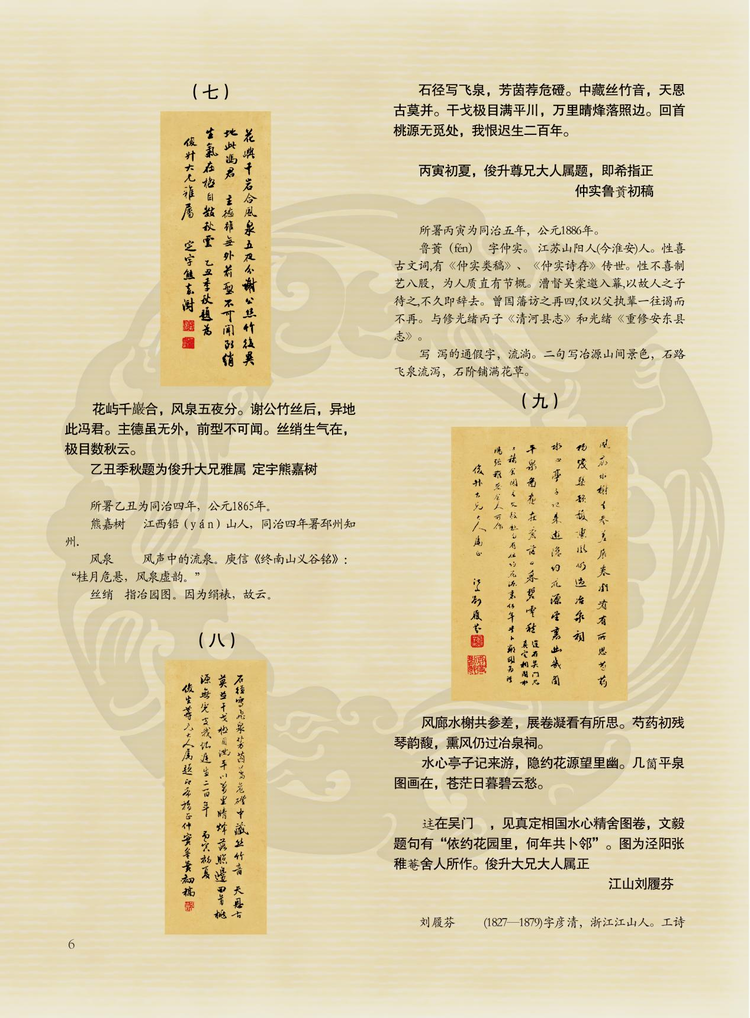 （七）
花屿千巖合，风泉五夜分。谢公竹丝后，异地
此冯君。主德虽无外，前型不可闻。丝绡生气在，
极目数秋云。
乙丑季秋题为俊升大兄雅属 定字熊嘉树
所署乙丑为同治四年，公元1865年。
熊嘉树 江西铅（yán）山人，同治四年署邳州知
州．
风泉 风声中的流泉。庾信《终南山义谷铭》：
“桂月危悬，风泉虚韵。”
丝绡 指冶园图。因为绢裱，故云。
（八）
石径写飞泉，芳茵荐危磴。中藏丝竹音，天恩
古莫并。干戈极目满平川，万里晴烽落照边。回首
桃源无觅处，我恨迟生二百年。
丙寅初夏，俊升尊兄大人属题，即希指正
仲实鲁蕡初稿
所署丙寅为同治五年，公元1886年。
鲁蕡（fén） 字仲实。江苏山阳人(今淮安)人。性喜
古文词,有《仲实类稿》、《仲实诗存》传世。性不喜制
艺八股，为人质直有节概。漕督吴棠邀入幕,以故人之子
待之,不久即辞去。曾国藩访之再四,仅以父执辈一往谒而
不再。与修光绪丙子《清河县志》和光绪《重修安东县
志》。
写 泻的通假字，流淌。二句写冶源山间景色，石路
飞泉流泻，石阶铺满花草。
（九）
风廊水榭共参差，展卷凝看有所思。芍药初残
琴韵馥，熏风仍过冶泉祠。
水心亭子记来游，隐约花源望里幽。几箇平泉
图画在，苍茫日暮碧云愁。
迬在吴门 ，见真定相国水心精舍图卷，文毅
题句有“依约花园里，何年共卜邻”。图为泾阳张
稚菴舍人所作。俊升大兄大人属正
江山刘履芬
刘履芬 (1827—1879)字彦清，浙江江山人。工诗
6